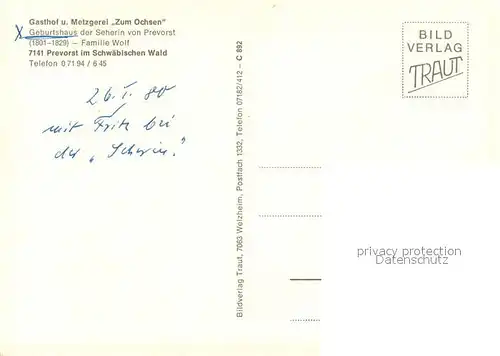 Gasthof u. Metzgerei „Zum Ochsen"
X Geburtshaus der Seherin von Prevorst
(1801–1829) – Familie Wolf
7141 Prevorst im Schwäbischen Wald
Telefon 0 71 94 / 6 45
26. I. 80
mit Fritz bei
der „Seherin."
Bildverlag Traut, 7063 Welzheim, Postfach 1332, Telefon 07182/412 – C 892
BILD
VERLAG
TRAUT
privacy protection
Datenschutz